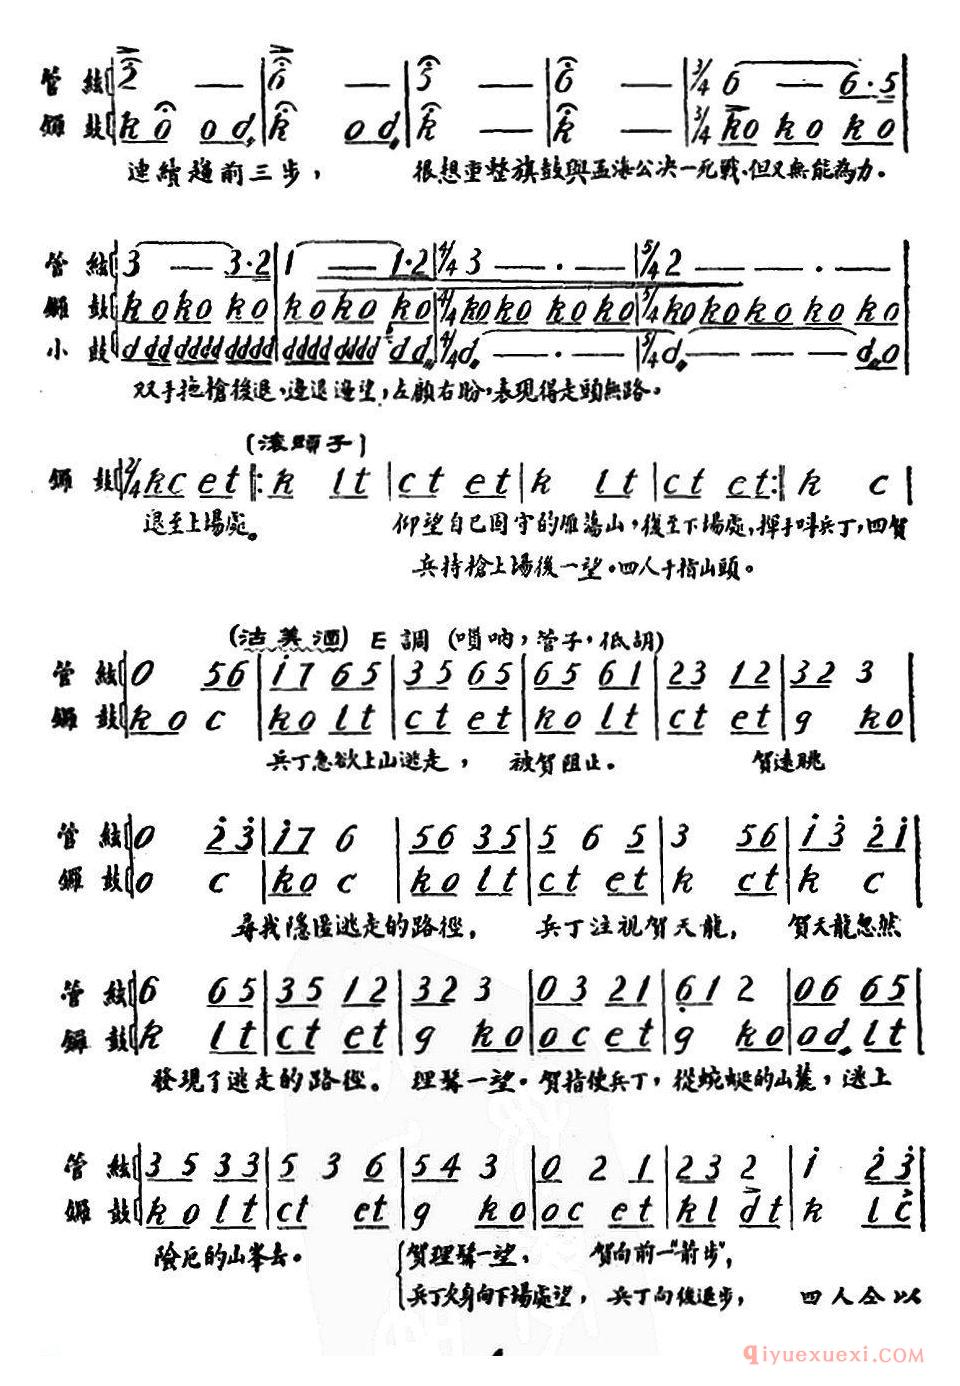 管絃 2 — 6 — 5 — 6 — 3/4 6 — 6·5
鑼鼓 k o o d, k o d, k — k — 3/4 ko ko ko
連續趨前三步， 很想重整旗鼓與孟海公决一死戰、但又無能為力。
管絃 3 — 3·2 1 — 1·2 4/4 3 — · — 5/4 2 — — · —
鑼鼓 ko ko ko ko ko ko 4/4 ko ko ko ko 5/4 ko ko ko ko ko
小鼓 d dd dddd dddd dddd dddd d d, 4/4 d, — · — 5/4 d, — — · d, o
双手拖槍後退、邊退邊望，左顧右盼，表現得走頭無路。
(滚頭子)
鑼鼓 2/4 kc et k lt ct et k lt ct et k c
退至上場處。 仰望自己固守的雁蕩山，後至下場處，揮手叫兵丁，四賀
兵持槍上場後一望。四人手指山頭。
(沽美酒) E調 (嗩吶，管子，低胡)
管絃 0 56 17 65 35 65 65 61 23 12 32 3
鑼鼓 ko c ko lt ct et ko lt ct et g ko
兵丁急欲上山逃走， 被賀阻止。 賀遠眺
管絃 0 23 17 6 56 35 5 6 5 3 56 13 21
鑼鼓 o c ko c ko lt ct et k ct k c
尋找隱匿逃走的路徑， 兵丁注視賀天龍， 賀天龍忽然
管絃 6 65 35 12 32 3 03 21 61 2 06 65
鑼鼓 k lt ct et g ko oc et g ko od, lt
發現了逃走的路徑。 理髯一望。賀指使兵丁，從蜿蜒的山麓，逃上
管絃 35 33 5 3 6 54 3 0 2 1 23 2 1 23
鑼鼓 ko lt ct et g ko oc et kl dt k lc
險厄的山峯去。 賀理髯一望、 賀向前一"前步"，
兵丁欠身向下場處望， 兵丁向後退步， 四人仝以
qiyuexuexi.COM